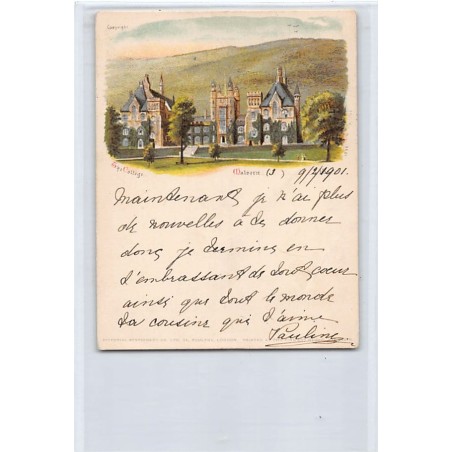 Copyright.
Boys College Malvern (3) 9/7/1901.
Maintenant je n'ai plus
de nouvelles à te donner
donc je termine en
t'embrassant de tout coeur
ainsi que tout le monde
Ta cousine qui t'aime
Pauline